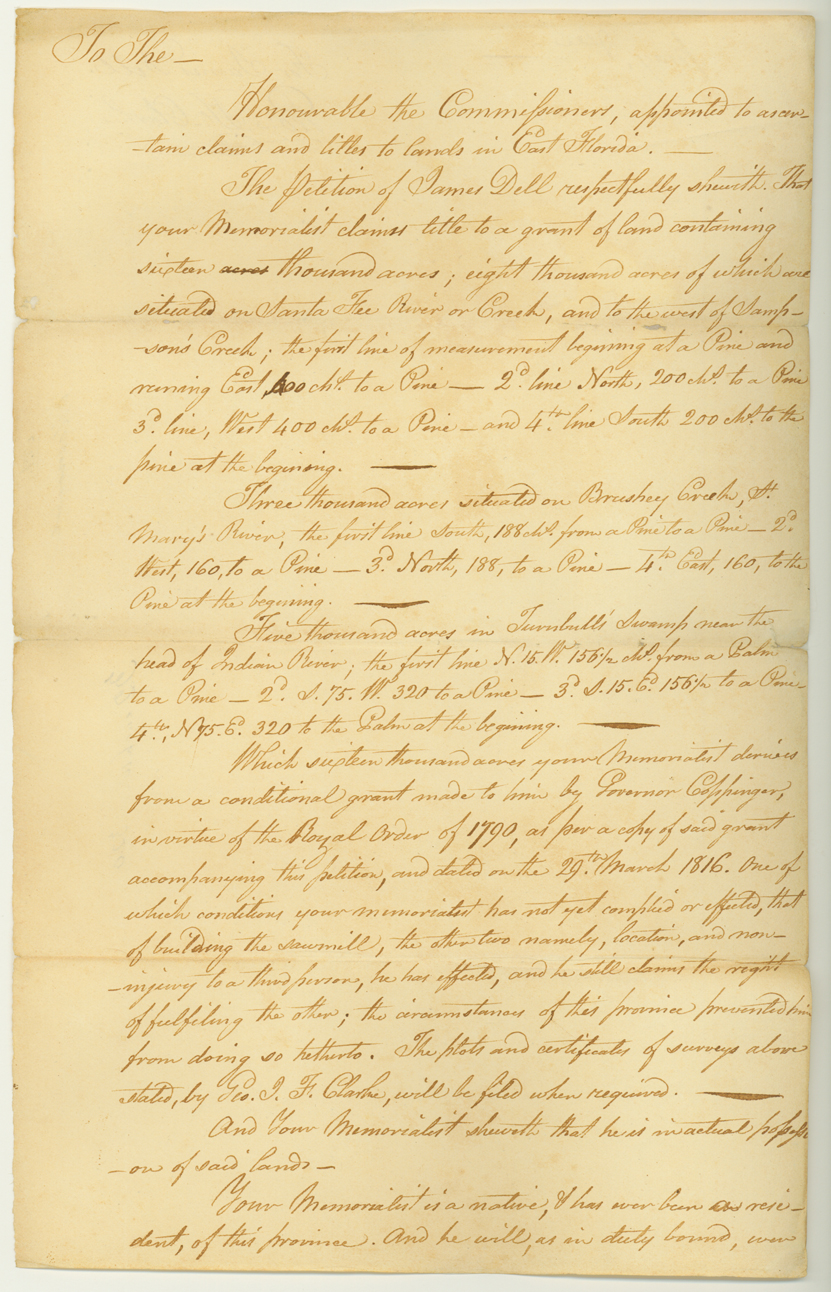 To The —
Honourable the Commissioners, appointed to ascer-
-tain claims and titles to lands in East Florida. —
The Petition of James Dell respectfully sheweth. That
your Memorialist claims title to a grant of land containing
sixteen acres thousand acres; eight thousand acres of which are
situated on Santa Fee River or Creek, and to the west of Samp-
-son's Creek; the first line of measurement begining at a Pine and
running East, 400 chs. to a Pine — 2d. line North, 200 chs. to a Pine
3d. line, West 400 chs. to a Pine — and 4th. line South 200 chs. to the
pine at the begining. —
Three thousand acres situated on Brushey Creek, St.
Mary's River, the first line South, 188 chs. from a Pine to a Pine — 2d.
West, 160, to a Pine — 3d. North, 188, to a Pine — 4th. East, 160, to the
Pine at the begining. —
Five thousand acres in Turnbull's Swamp near the
head of Indian River; the first line N. 15. W. 156 1/2 chs. from a Palm
to a Pine — 2d. S. 75. W. 320 to a Pine — 3d. S. 15. Ed. 156 1/2 to a Pine —
4th., N 75. Ed. 320 to the Palm at the begining. —
Which sixteen thousand acres your Memorialist derives
from a conditional grant made to him by Governor Coppinger,
in virtue of the Royal Order of 1790, as per a copy of said grant
accompanying this petition, and dated on the 29th. March 1816. One of
which conditions your memorialist has not yet complied or effected, that
of building the sawmill, the other two namely, location, and non-
-injury to a third person, he has effected, and he still claims the right
of fulfiling the other; the circumstances of this province prevented him
from doing so hetherto. The plots and certificates of surveys above
stated, by Geo. J. F. Clarke, will be filed when required. —
And Your Memorialist sheweth that he is in actual possessi
-on of said lands —
Your Memorialist is a native, & has ever been a resi-
dent, of this province. And he will, as in duty bound, ever